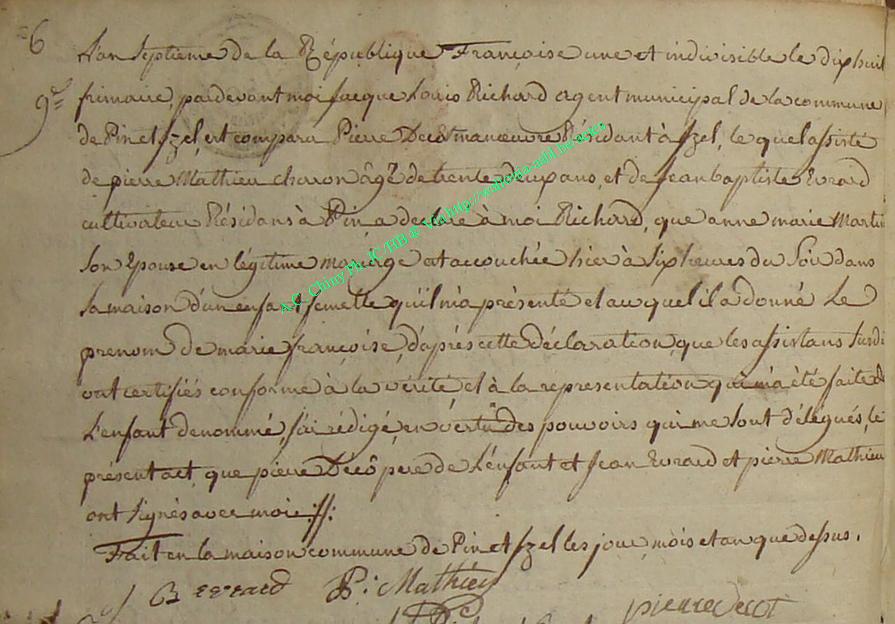 6
L'an Septieme de la République Françoise une et indivisible le dixhuit
9e frimaire, pardevant moi Jacque Louis Richard agent municipal de la commune
de Pin et Izel, est comparu Pierre Decot manœuvre Résidant à Izel, le quel assisté
de pierre Mathieu charon âgé de trente deux ans, et de jean baptiste Evrard
cultivateur Résidans à Pin a declaré à moi Richard, que anne marie Martin
son Epouse en légitime mariage est accouchée hier à six heures du Soir dans
sa maison d'un enfant femelle qu'il m'a présenté et au quel il a donné Le
prenom de marie françoise, d'après cette déclaration, que les assistans susd
ont certifiés conforme à la vérité et à la representation qui m'a été faite de
L'enfant denommé, j'ai rédigé, en vertu des pouvoirs qui me sont délégués, le
présent act, que pierre Decô pere de L'enfant et Jean Evrard et pierre Mathieu
ont signés avec moi.
Fait en la maison commune de Pin et Izel les jour, mois et an que dessus.
Evrard P: Mathieu
pierre decot
A.C. Chiny